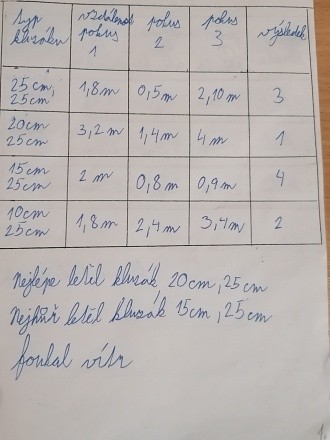 typ kluzáku vzdálenost pokus 1 pokus 2 pokus 3 výsledek
25cm, 25cm 1,8m 0,5m 2,10m 3
20cm 25cm 3,2m 1,4m 4m 1
15cm 25cm 2m 0,8m 0,9m 4
10cm 25cm 1,8m 2,4m 3,4m 2
Nejlépe letěl kluzák 20cm, 25cm
Nejhůř letěl kluzák 15cm, 25cm
foukal vítr